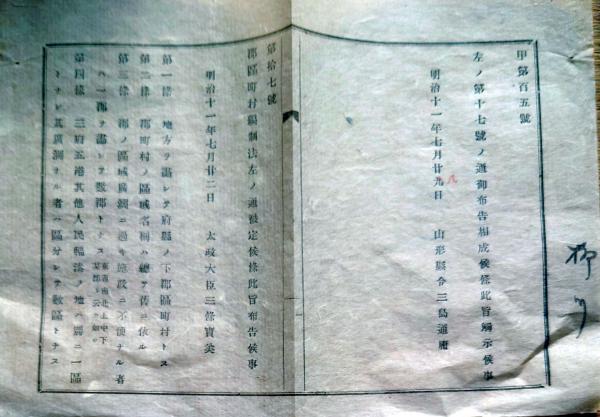 甲第百五號
左ノ第十七號ノ通御布告相成候條此旨觸示候事
明治十一年七月廿九日 山形縣令三島通庸
八
第拾七號
郡區町村編制法左ノ通被定候條此旨布告候事
明治十一年七月廿二日 太政大臣三條實美
第一條 地方ヲ畫シテ府縣ノ下郡區町村トス
第二條 郡町村ノ區域名稱ハ總テ舊ニ依ル
第三條 郡ノ區域廣濶ニ過キ施政ニ不便ナル者
ハ一郡ヲ畫シテ數郡トナス 東西南北上中下某郡ト云カ如シ
第四條 三府五港其他人民輻湊ノ地ハ別ニ一區
トナシ其廣濶ナル者ハ區分シテ數區トナス